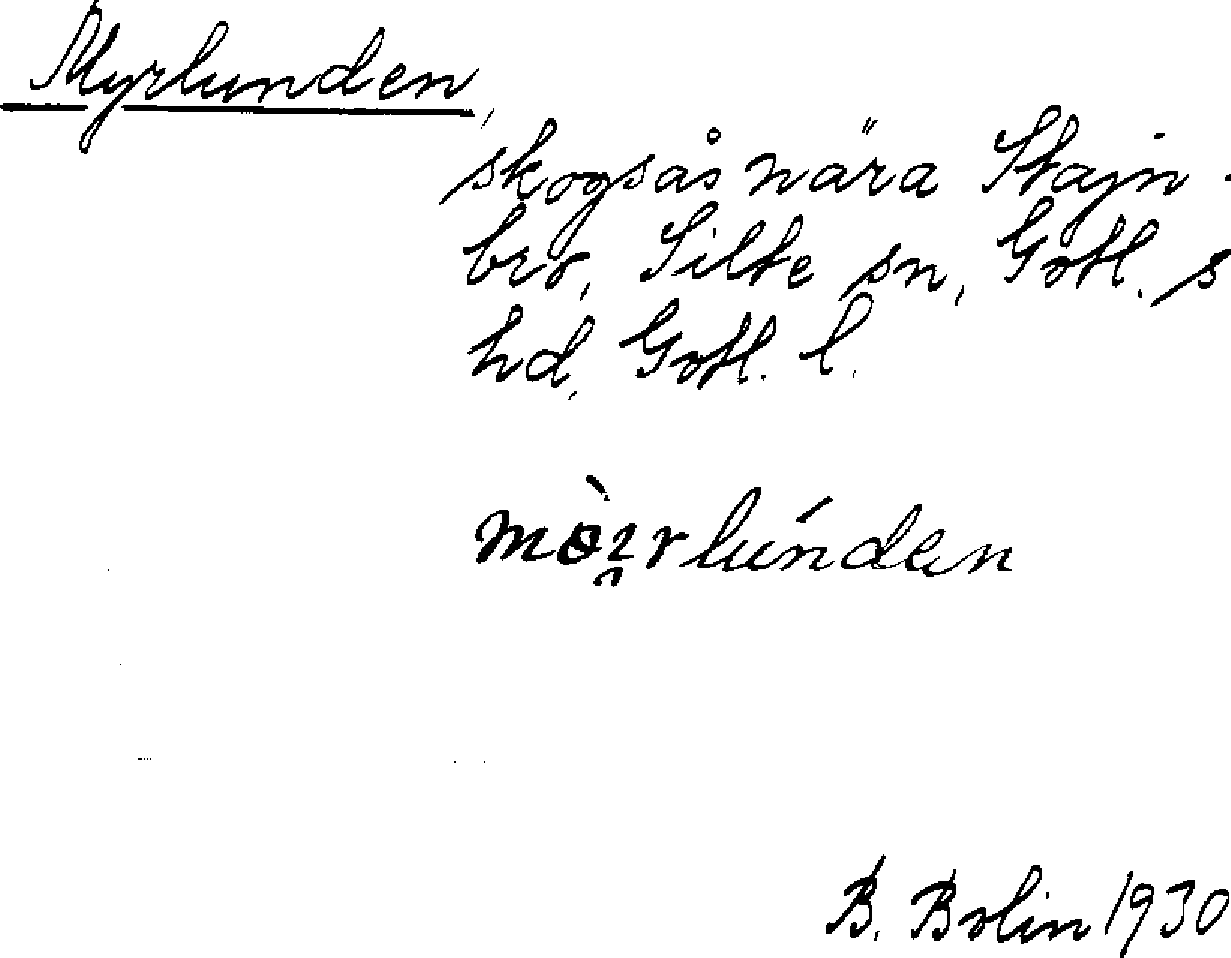 Myrlunden,
skogsås nära Stajn-
bro, Silte sn, Gotl. s
hd, Gotl. l.
lunden
B. Bolin 1930